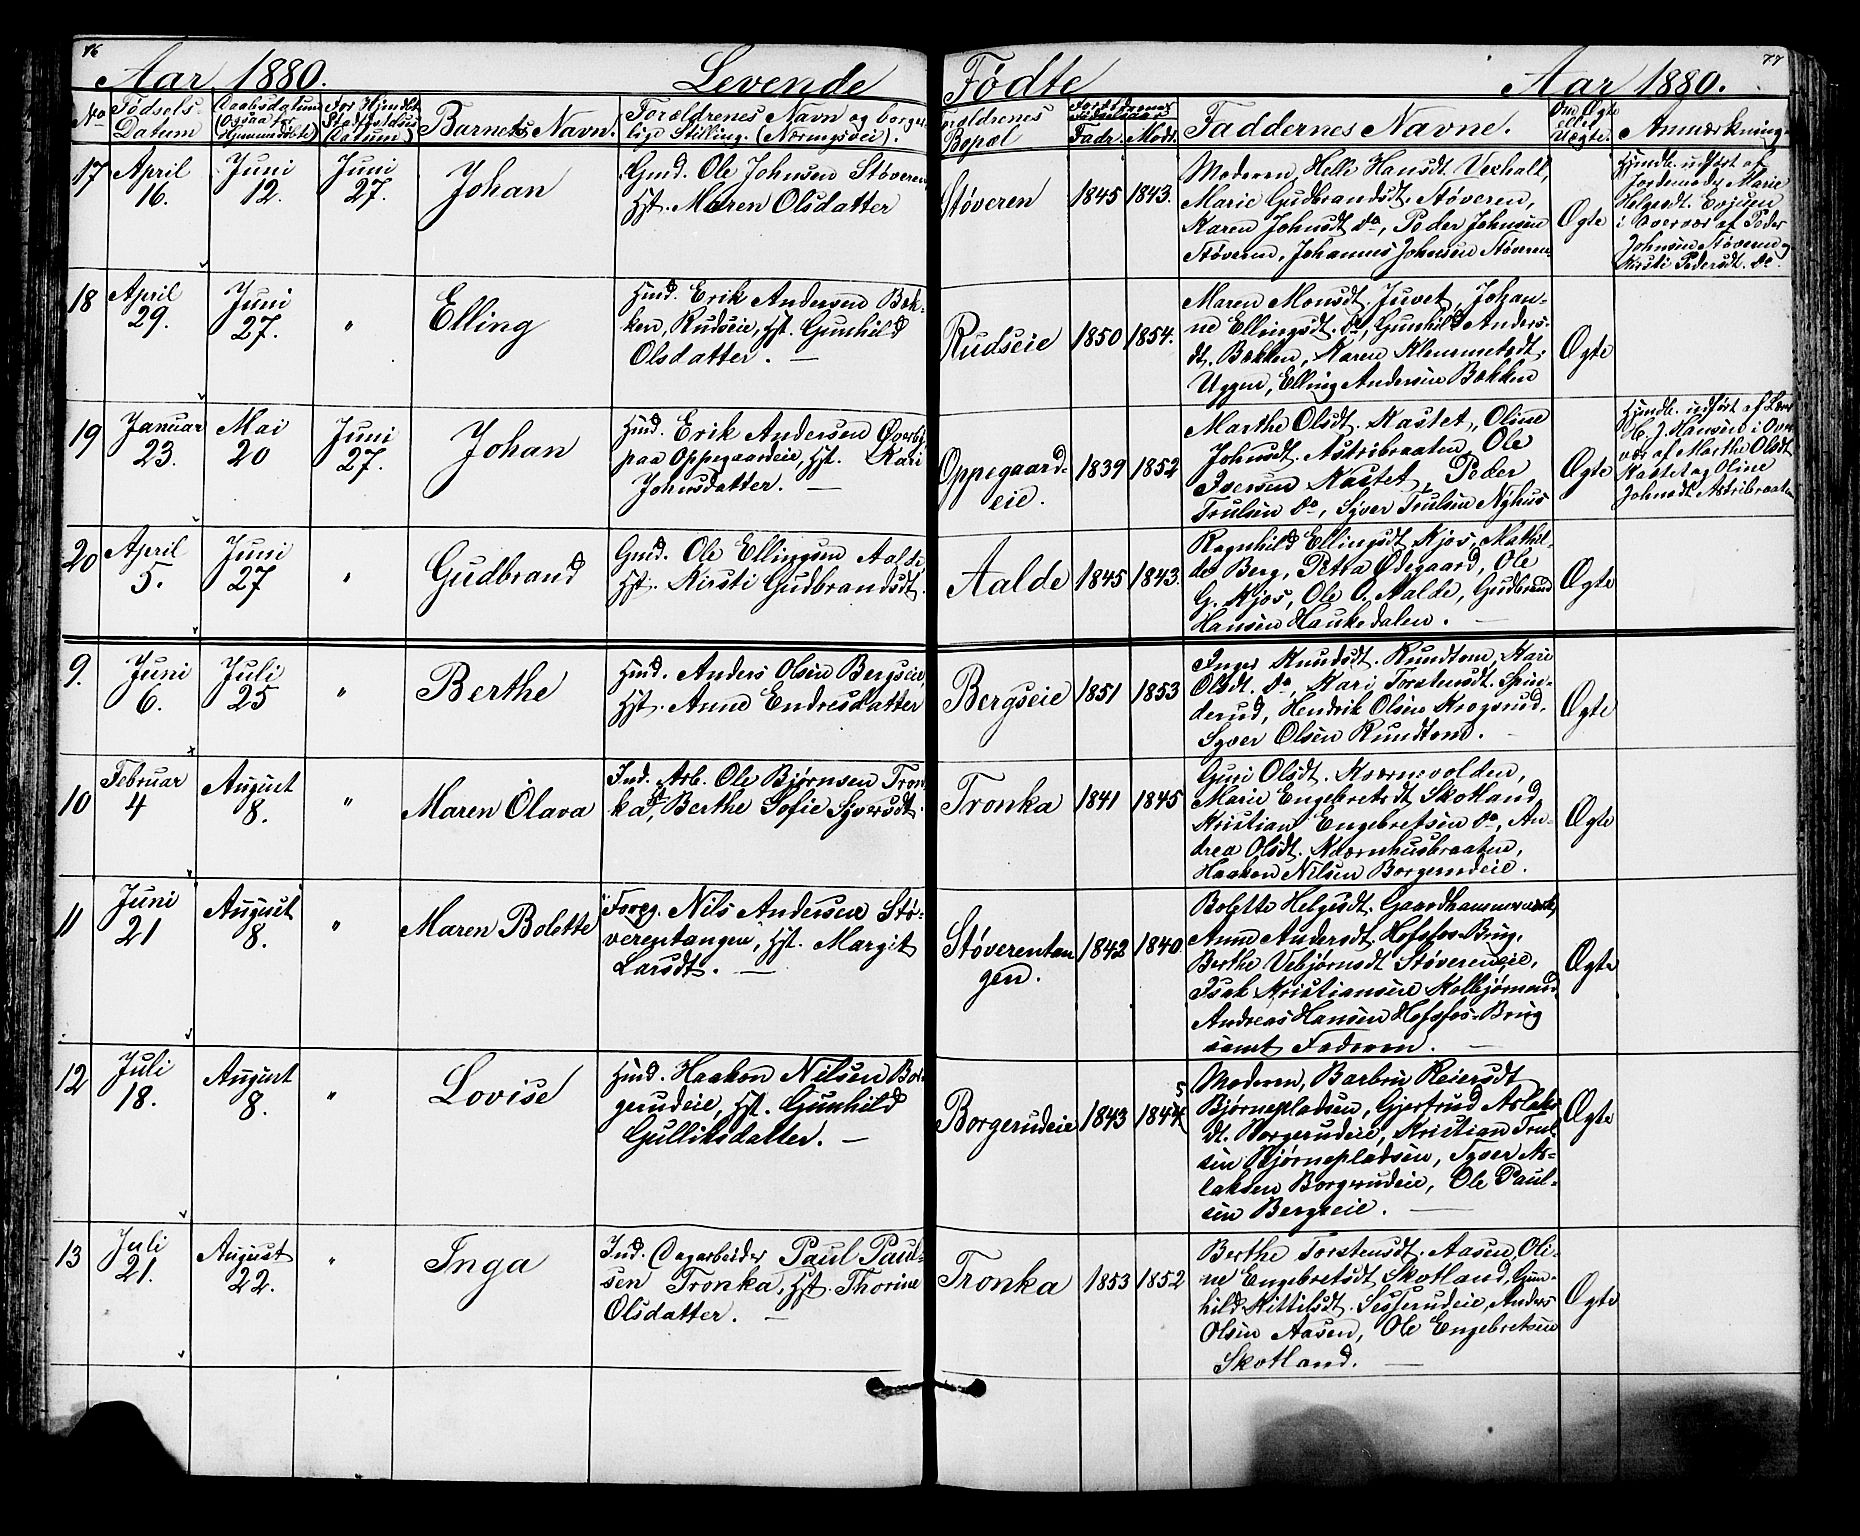 76
Aar 1880.
Levende
Fødte
Aar 1880.
77
No
Fødsels-
Datum
Daabsdatum
(Ogsaa for
Hjemmedøbte)
For Hjemdbt.
Stadfæstelses
Datum)
Barnets Navn.
Forældrenes Navn og borger-
lige Stilling. (Næringsvei).
Forældrenes
Bopæl
Forældrenes
Fødselsaar
Fadr. Modr.
Faddernes Navne.
Om Ægte
eller
Uægte.
Anmærkning.
17
April
16.
Juni
12.
Juni
27.
Johan
Gmd. Ole Johnsen Støveren,
Hst. Maren Olsdatter
Støveren
1845
1843.
Moderen, Helle Hansdt. Vexhalt,
Marie Gudbrandsdt. Støveren,
Karen Johnsdt. Do, Peder Johnsen
Støveren, Johannes Johnsen Støveren.
Ægte
Hjmdb. udført af
Jordemoder Marie
Helgesdt. Evjuen
i Overvær af Peder
Johnsen Støveren og
Kirsti Pedersdt. Do.
18
April
29.
Juni
27.
"
Elling
Hmd. Erik Andersen Bæk-
ken, Rudseie, Hst. Gunhild
Olsdatter. —
Rudseie
1850
1854.
Maren Monsdt. Juvet, Johan-
ne Ellingsdt. Do, Gunhild Anders-
dt. Bækken, Karen Klemmetsdt.
Uggen, Elling Andersen Bækken
Ægte
19
Januar
23.
Mai
20
Juni
27.
Johan
Hmd. Erik Andersen Øverby
paa Oppegaardeie, Hst. Kari
Johnsdatter. —
Oppegaard-
eie.
1839
1852
Marthe Olsdt. Kastet, Oline
Johnsdt. Astribraaten, Ole
Iversen Kastet, Peder
Trulsen Do, Syver Trulsen Nyhus
Ægte
Hjmdb. udført af Lærer
J. Hansen i Over-
vær af Marthe Olsdt.
Kastet og Oline
Johnsdt. Astribraaten
20
April
5.
Juni
27
"
Gudbrand
Gmd. Ole Ellingsen Aalde,
Hst. Kirsti Gudbrandsdt.
Aalde
1845
1843.
Ragnhild Ellingsdt. Kjos, Mathil-
de Berg, Petra Ødegaard, Ole
G. Kjos, Ole O. Aalde, Gudbrand
Hansen Haukedalen. —
Ægte
9.
Juni
6.
Juli
25
"
Berthe
Hmd. Anders Olsen Bergseie,
Hst. Anne Endresdatter
Bergseie
1851
1853
Inger Knudsdt. Rundtom, Kari
Olsdt. Do, Kari Torstensdt. Spin-
derud, Hendrik Olsen Krogsrud,
Syver Olsen Rundtom. -
Ægte
10
Februar
4
August
8.
"
Maren Olava
Ind. Arb. Ole Bjørnsen Tron-
ka, Hst. Berthe Sofie Syversdt.
Tronka
1841
1845
Guri Olsdt. Kværnevolden,
Marie Engebretsdt Skotland,
Kristian Engebretsen Do, An-
drea Olsdt. Kværnhusbraaten,
Haakon Nilsen Borgerudeie.
Ægte
11
Juni
21
August
8.
"
Maren Bolette
Forpg. Nils Andersen Stø-
verentangen, Hst. Margit
Larsdt. —
Støverentan
gen.
1842
1840
Bolette Helgesdt.
Anne Andersdt. Hofsfos-Brug,
Berthe Vebjørnsdt Støvereneie,
Isak Kristiansen Kolbjørnrud
Andreas Hansen Hofsfos-Brug
samt Faderen. —
Ægte
12
Juli
18.
August
8.
"
Lovise
Hmd. Haakon Nilsen Bor-
gerudeie, Hst. Gunhild
Gulliksdatter. —
Borgerudeie
1843
5
1844
Moderen, Barbru Reiersdt
Bjørnepladsen, Gjertrud Aslaks-
dt. Borgerudeie, Kristian Trul-
sen Bjørnepladsen, Syver As-
laksen Borgerudeie, Ole Paul-
sen Bergseie. —
Ægte
13
Juli
21.
August
22.
"
Inga
Ind. Dagarbeider Paul Paul-
sen Tronka, Hst. Thorine
Olsdatter. —
Tronka
1853
1852
Berthe Torstensdt. Aasen, Oli-
ne Engebretsdt Skotland, Gun-
hild Kittilsdt. Sesserudeie, Anders
Olsen Aasen, Ole Engebretsen
Skotland. —
Ægte